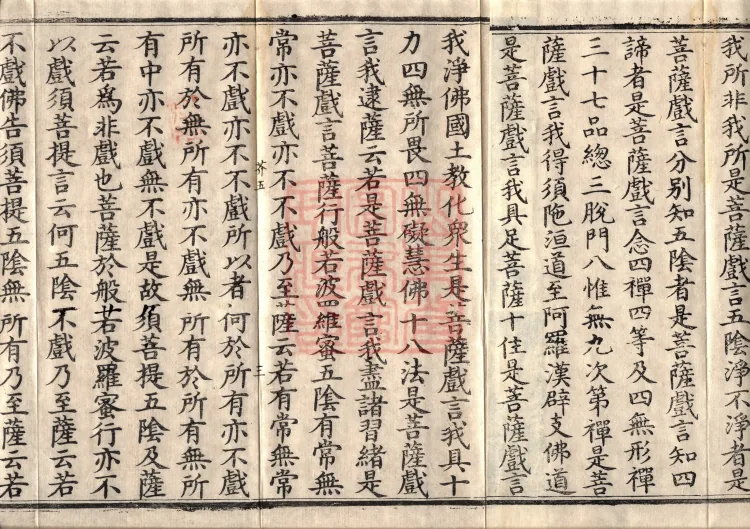 我所非我所是菩薩戲言五陰淨不淨者是
菩薩戲言分别知五陰者是菩薩戲言知四
諦者是菩薩戲言念四禪四等及四無形禪
三十七品總三脫門八惟無九次第禪是菩
薩戲言我得須陁洹道至阿羅漢辟支佛道
是菩薩戲言我具足菩薩十住是菩薩戲言
我淨佛國土教化衆生是菩薩戲言我具十
力四無所畏四無礙慧佛十八法是菩薩戲
言我逮薩云若是菩薩戲言我盡諸習緒是
菩薩戲言菩薩行般若波羅蜜五陰有常無
常亦不戲亦不不戲乃至薩云若有常無常
芥五
三
亦不戲亦不不戲所以者何於所有亦不戲
所有於無所有亦不戲無所有於所有無所
有中亦不戲無不戲是故須菩提五陰及薩
云若爲非戲也菩薩於般若波羅蜜行亦不
以戲須菩提言云何五陰不戲乃至薩云若
不戲佛告須菩提五陰無所有乃至薩云若